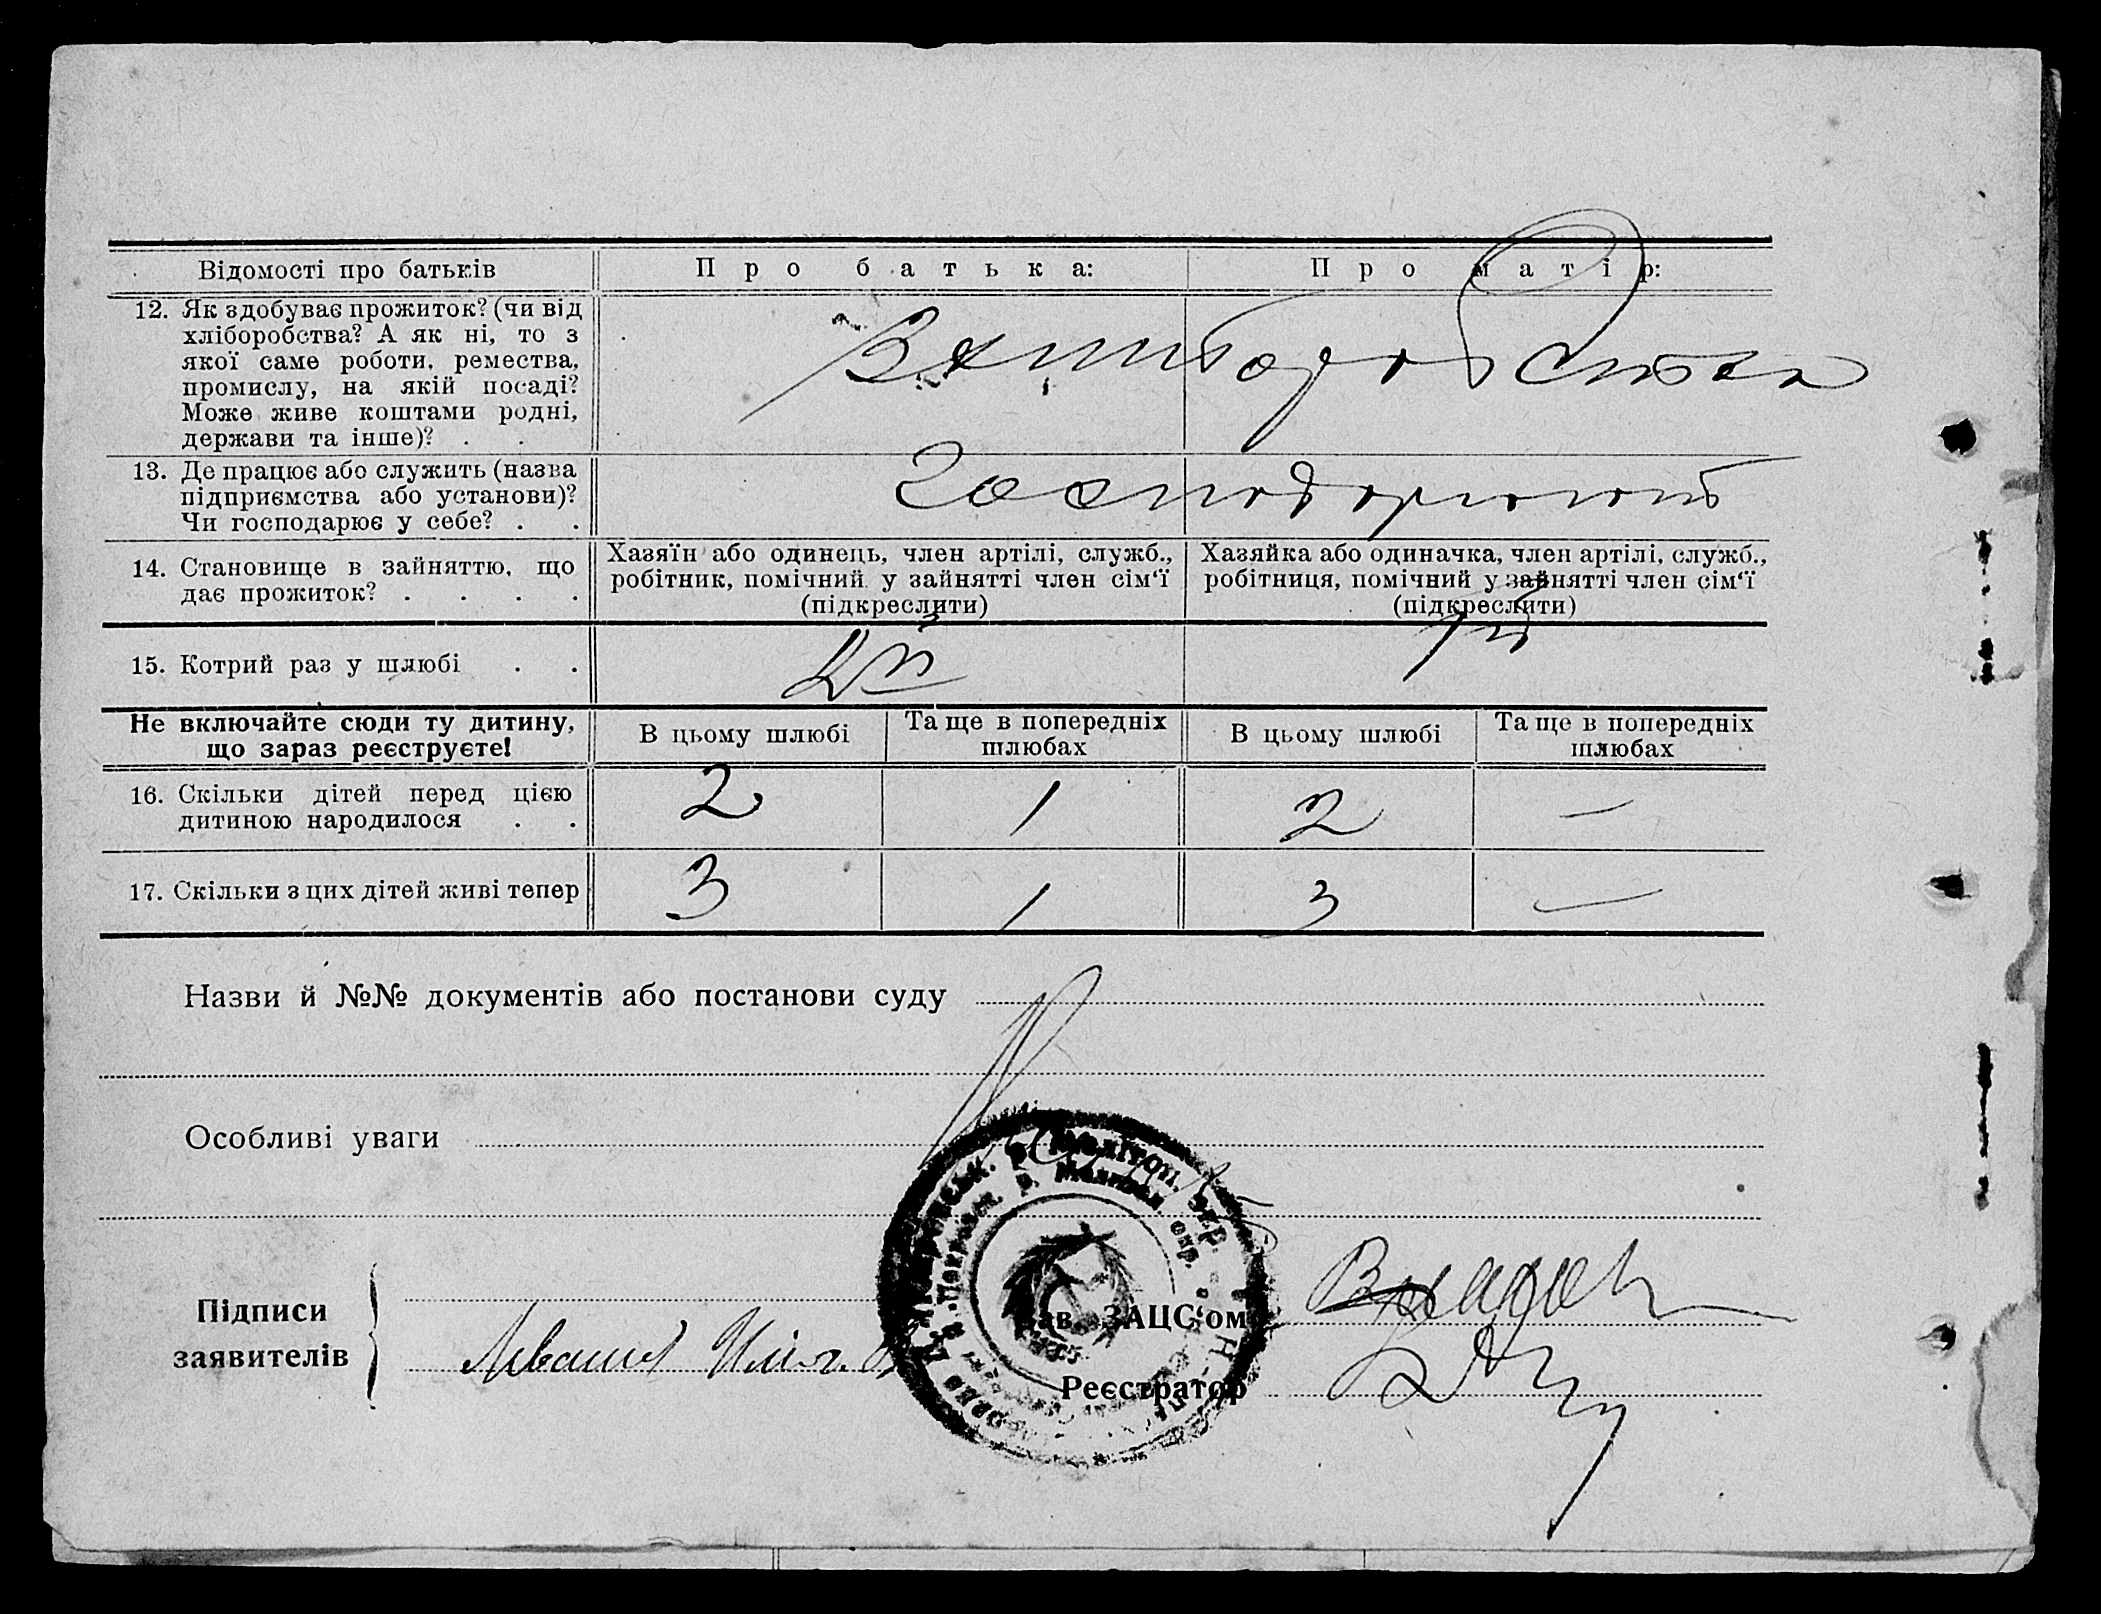 Відомості про батьків
Про батька:
Про матір:
12. Як здобуває прожиток? (чи від
хліборобства? А як ні, то з
якої саме роботи, ремества,
промислу, на якій посаді?
Може живе коштами родні,
держави та інше)? . .
13. Де працює або служить (назва
підприємства або установи)?
Чи господарює у себе? . .
14. Становище в зайняттю, що
дає прожиток? . . . .
Хазяїн або одинець, член артілі, служб.,
робітник, помічний у зайнятті член сім‘ї
(підкреслити)
Хазяйка або одиначка, член артілі, служб.,
робітниця, помічний у зайнятті член сім‘ї
(підкреслити)
15. Котрий раз у шлюбі . .
Не включайте сюди ту дитину,
що зараз реєструєте!
В цьому шлюбі
Та ще в попередніх
шлюбах
В цьому шлюбі
Та ще в попередніх
шлюбах
16. Скільки дітей перед цією
дитиною народилося . .
2 1 2 —
17. Скільки з цих дітей живі тепер
3 1 3 —
Назви й №№ документів або постанови суду
Особливі уваги
Підписи
заявителів
Зав. ЗАЦС‘ом
Реєстратор